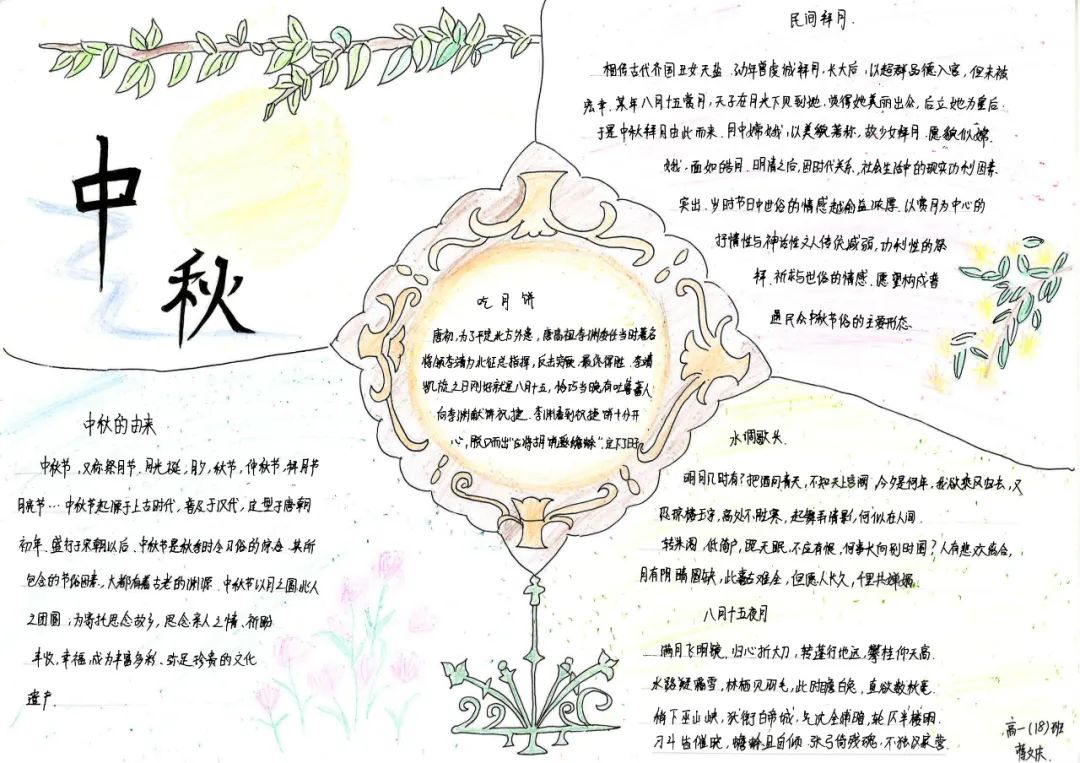 中
秋
民间拜月.
相传古代齐国丑女无盐.幼年曾虔诚拜月,长大后,以超群品德入宫,但未被
宠幸.某年八月十五赏月,天子在月光下见到她,觉得她美丽出众,后立她为皇后.
于是中秋拜月由此而来.月中嫦娥,以美貌著称,故少女拜月.愿貌似嫦
娥.面如皓月.明清之后,因时代关系,社会生活中的现实功利因素
突出.岁时节日中世俗的情感愈益浓厚.以赏月为中心的
抒情性与神话性文人传统减弱,功利性的祭
拜.祈求与世俗的情感.愿望构成普
通民众中秋节俗的主要形态.
吃月饼
唐初,为了平定北方外患,唐高祖李渊委任当时著名
将领李靖为北征总指挥,反击突厥.最终得胜.李靖
凯旋之日刚好就是八月十五,恰巧当晚有吐鲁蕃人
向李渊献饼祝捷.李渊看到祝捷饼十分开
心,脱口而出"应将胡饼邀蟾蜍".
中秋的由来
中秋节,又称祭月节.月光诞,月夕,秋节,仲秋节,拜月节
月娘节…中秋节起源于上古时代,普及于汉代,定型于唐朝
初年.盛行于宋朝以后.中秋节是秋季时令习俗的综合.其所
包含的节俗因素,大都有着古老的渊源.中秋节以月之圆兆人
之团圆,为寄托思念故乡,思念亲人之情、祈盼
丰收,幸福,成为丰富多彩、弥足珍贵的文化
遗产.
水调歌头.
明月几时有?把酒问青天,不知天上宫阙,今夕是何年.我欲乘风归去,又
恐琼楼玉宇,高处不胜寒,起舞弄清影,何似在人间.
转朱阁,低绮户,照无眠.不应有恨,何事长向别时圆?人有悲欢离合,
月有阴晴圆缺,此事古难全,但愿人长久,千里共婵娟.
八月十五夜月
满月飞明镜.归心折大刀,转蓬行地远,攀桂仰天高.
水路疑霜雪,林栖见羽毛,此时瞻白兔,直欲数秋毫.
稍下巫山峡,犹衔白帝城,气沈全浦暗,轮仄半楼明.
刁斗皆催晓,蟾蜍且自倾.张弓倚残魄,不独汉家营.
高一(18)班